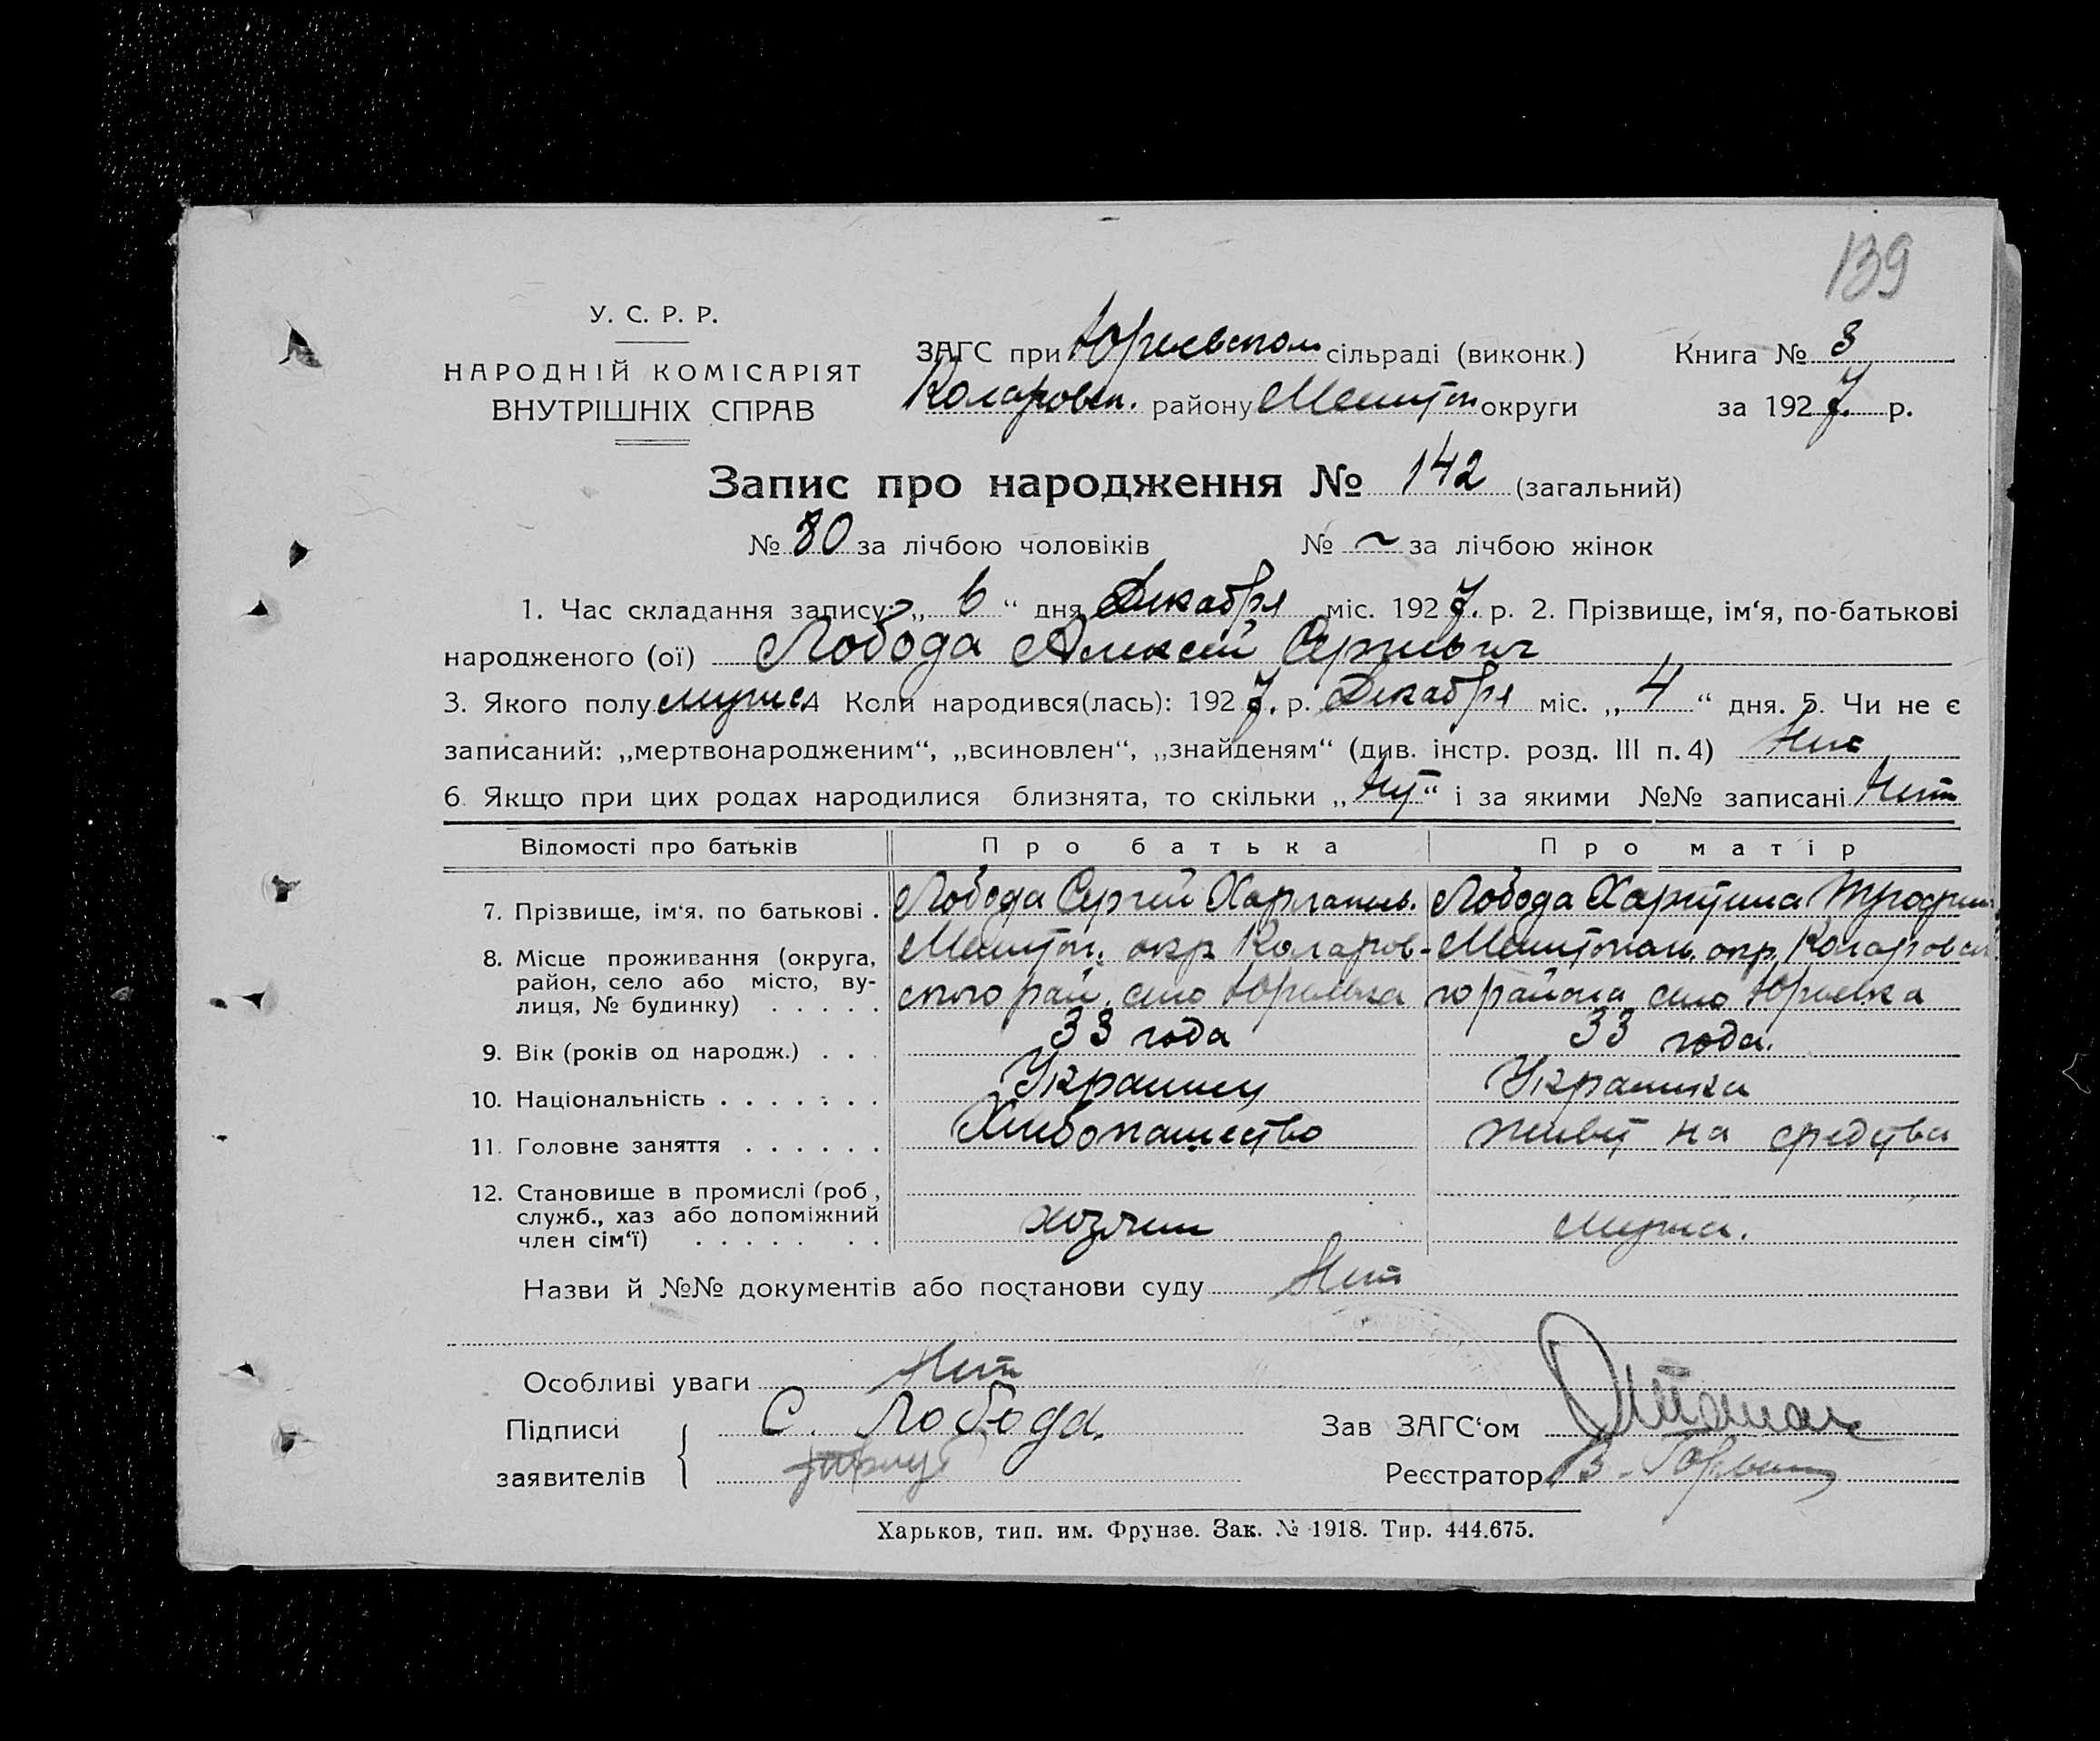 139
У. С. Р. Р.
НАРОДНІЙ КОМІСАРІЯТ
ВНУТРІШНІХ СПРАВ
ЗАГС при Юрьевском сільраді (виконк.)
Коларовск. району Мелитоп округи
Книга № 3
за 1927 р.
Запис про народження № 142 (загальний)
№ 80 за лічбою чоловіків № ~ за лічбою жінок
1. Час складання запису: „ 6 “ дня Декабря міс. 1927. р. 2. Прізвище, ім‘я, по-батькові
народженого (ої) Лобода Алексей Сергеевич
3. Якого полу мужск 4 Коли народився(лась): 1927. р. Декабря міс. „ 4 “ дня. 5. Чи не є
записаний: „мертвонародженим“, „всиновлен“, „знайденям“ (див. інстр. розд. III п. 4) Нет
6. Якщо при цих родах народилися близнята, то скільки „ Нет “ і за якими №№ записані Нет
Відомості про батьків Про батька Про матір
7. Прізвище, ім‘я, по батькові . Лобода Сергей Харлампиев. Лобода Харитина Трофим
8. Місце проживання (округа, район, село або місто, вулиця, № будинку) . . . . . Мелитоп. окр. Коларовского рай. село Юрьевка Мелитопольск. окр. Коларовск го района село Юрьевка
9. Вік (років од народж.) . . . 33 года 33 года.
10. Національність . . . . . . . Украинец Украинка
11. Головне заняття . . . . . . Хлебопашество живет на средства
12. Становище в промислі (роб., служб., хаз або допоміжний член сім‘ї) . . . . . . . хозяин мужа.
Назви й №№ документів або постанови суду Нет
Особливі уваги Нет
Підписи
заявителів
С. Лобода.
Зав ЗАГС‘ом
Реєстратор
Харьков, тип. им. Фрунзе. Зак. № 1918. Тир. 444.675.